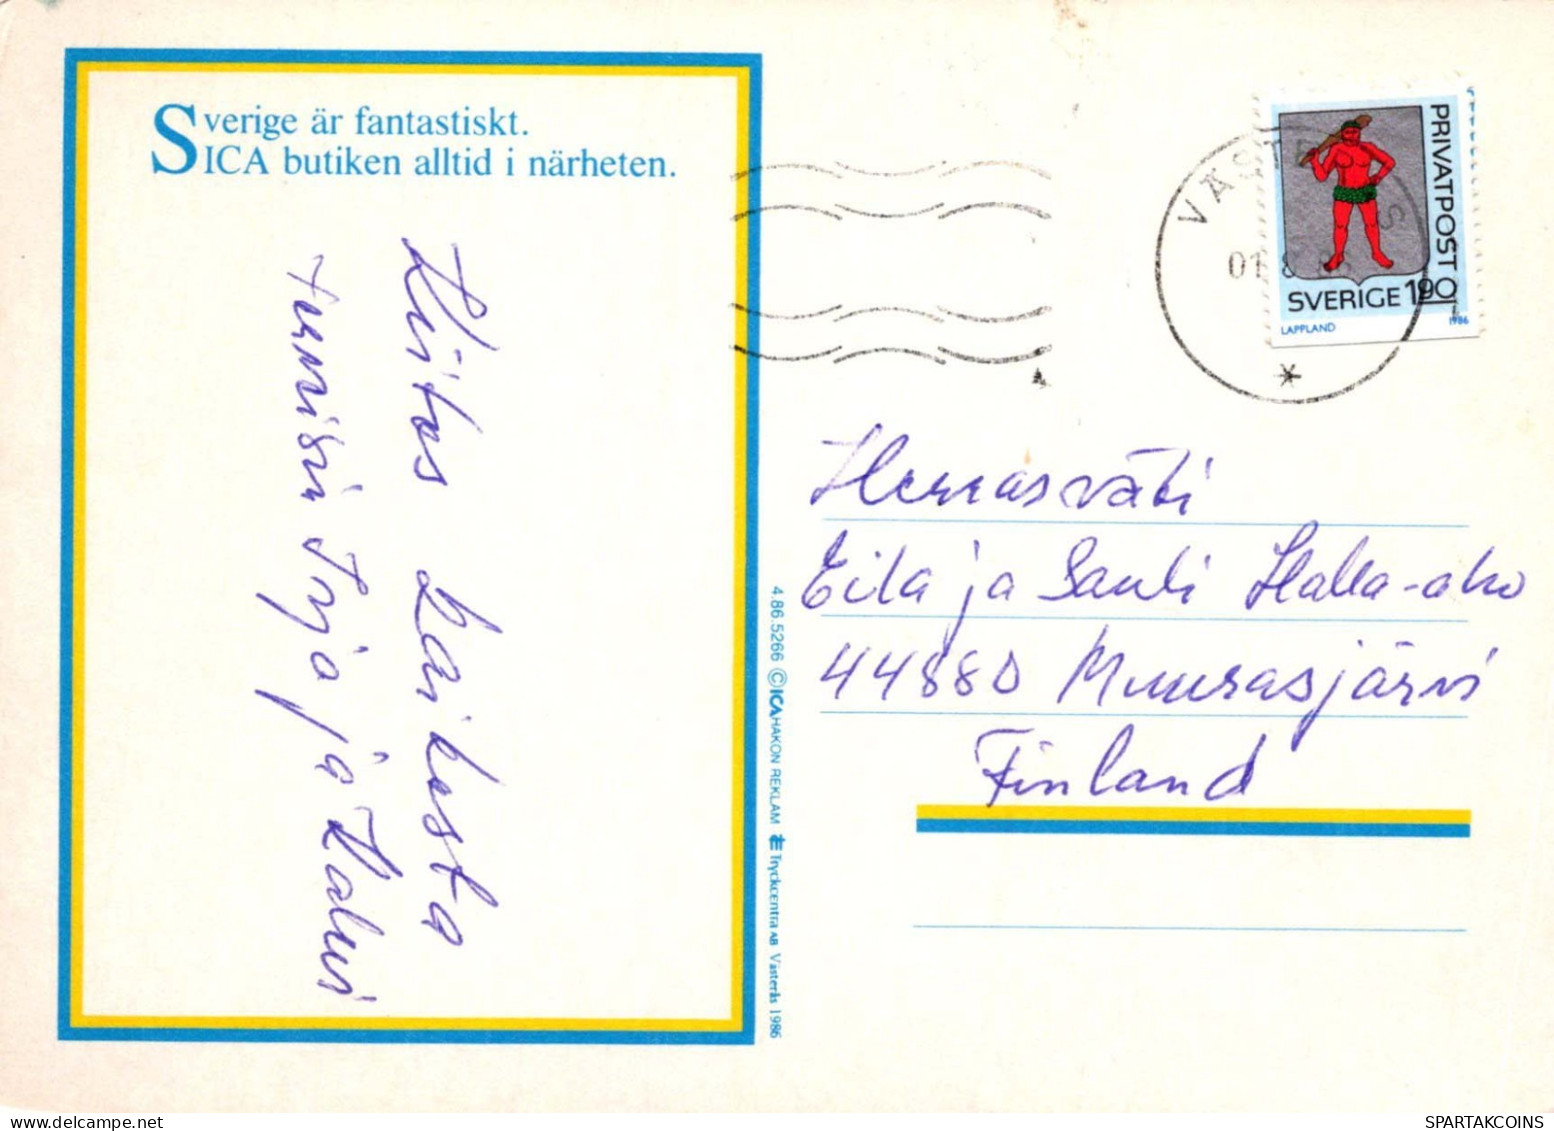 Sverige är fantastiskt.
ICA butiken alltid i närheten.
Kiitos Kaikesta
terveisin Irja ja Kalevi
4.86.5266 © ICA HAKON REKLAM Tryckcentra AB Västerås 1986
VÄSTERÅS
01 8 86
PRIVATPOST
SVERIGE 190
LAPPLAND 1986
Herrasväki
Eila ja Sauli Halla-aho
44880 Muurasjärvi
Finland
SPARTAKCOINS